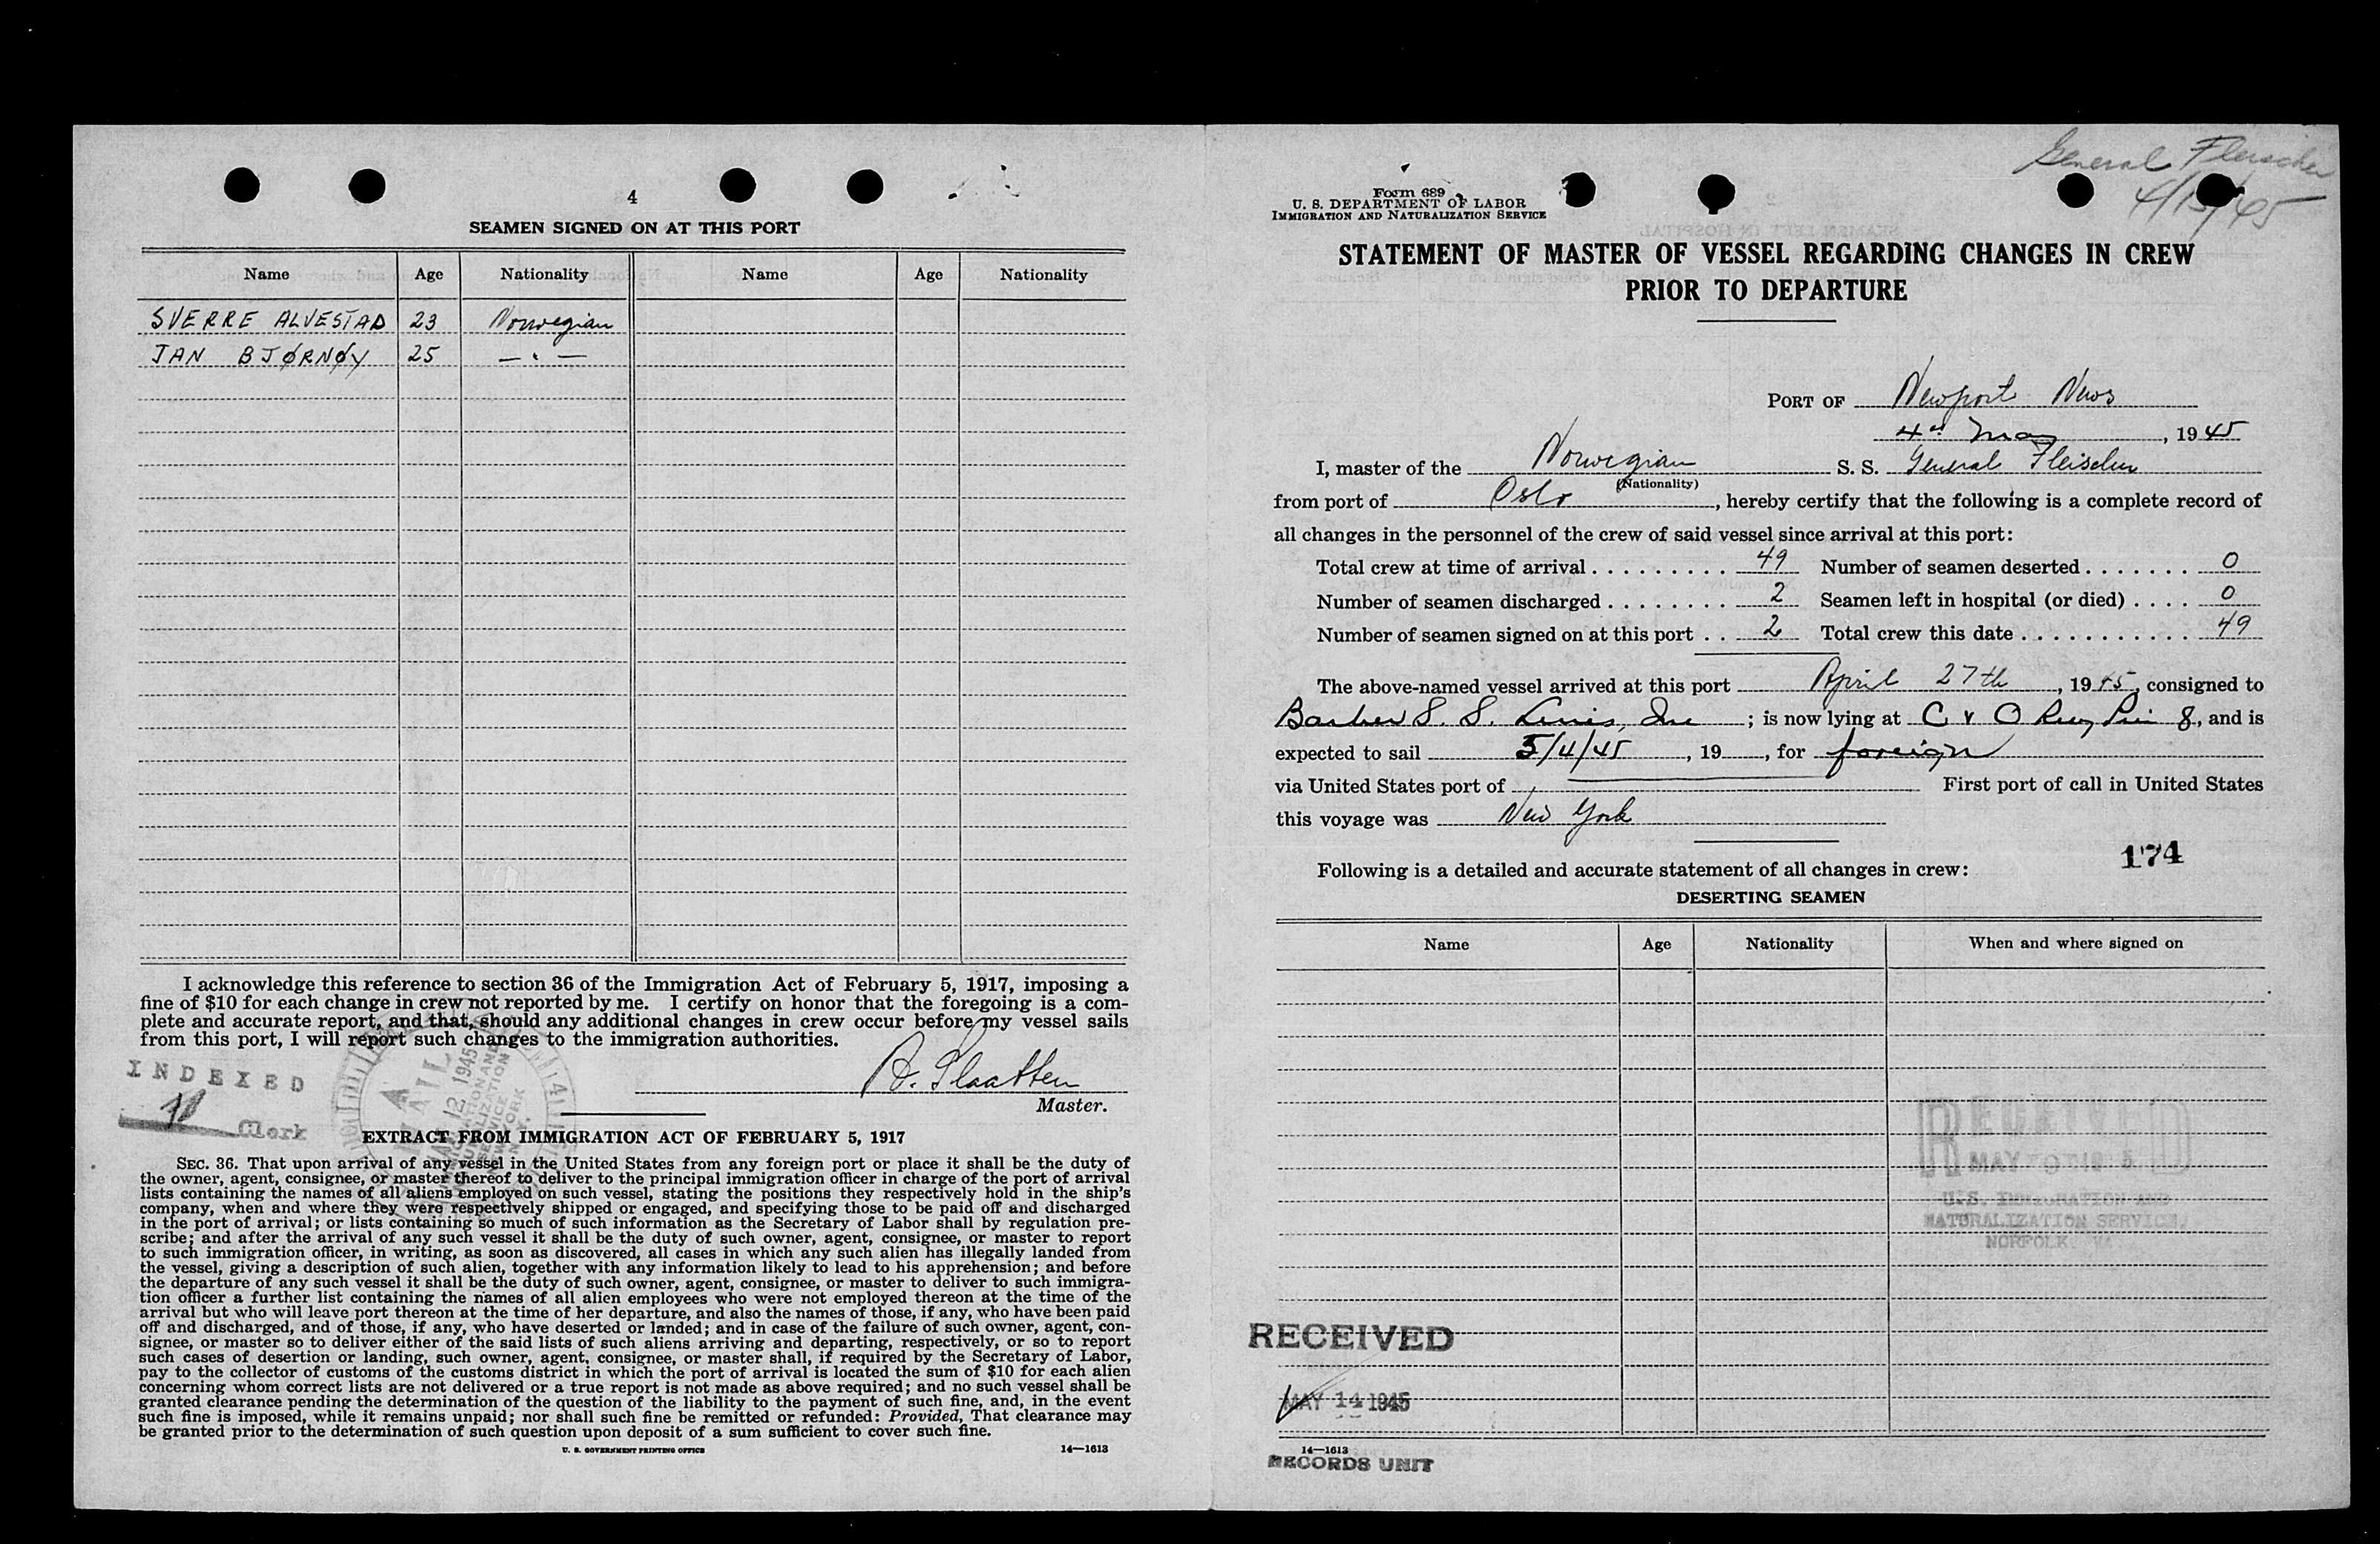 4
SEAMEN SIGNED ON AT THIS PORT
Name Age Nationality Name Age Nationality
SVERRE ALVESTAD 23 Norwegian
JAN BJØRNØY 25 — " —
I acknowledge this reference to section 36 of the Immigration Act of February 5, 1917, imposing a
fine of $10 for each change in crew not reported by me. I certify on honor that the foregoing is a com-
plete and accurate report, and that, should any additional changes in crew occur before my vessel sails
from this port, I will report such changes to the immigration authorities.
Master.
INDEXED
Clerk
MAIL
1945
EXTRACT FROM IMMIGRATION ACT OF FEBRUARY 5, 1917
SEC. 36. That upon arrival of any vessel in the United States from any foreign port or place it shall be the duty of
the owner, agent, consignee, or master thereof to deliver to the principal immigration officer in charge of the port of arrival
lists containing the names of all aliens employed on such vessel, stating the positions they respectively hold in the ship's
company, when and where they were respectively shipped or engaged, and specifying those to be paid off and discharged
in the port of arrival; or lists containing so much of such information as the Secretary of Labor shall by regulation pre-
scribe; and after the arrival of any such vessel it shall be the duty of such owner, agent, consignee, or master to report
to such immigration officer, in writing, as soon as discovered, all cases in which any such alien has illegally landed from
the vessel, giving a description of such alien, together with any information likely to lead to his apprehension; and before
the departure of any such vessel it shall be the duty of such owner, agent, consignee, or master to deliver to such immigra-
tion officer a further list containing the names of all alien employees who were not employed thereon at the time of the
arrival but who will leave port thereon at the time of her departure, and also the names of those, if any, who have been paid
off and discharged, and of those, if any, who have deserted or landed; and in case of the failure of such owner, agent, con-
signee, or master so to deliver either of the said lists of such aliens arriving and departing, respectively, or so to report
such cases of desertion or landing, such owner, agent, consignee, or master shall, if required by the Secretary of Labor,
pay to the collector of customs of the customs district in which the port of arrival is located the sum of $10 for each alien
concerning whom correct lists are not delivered or a true report is not made as above required; and no such vessel shall be
granted clearance pending the determination of the question of the liability to the payment of such fine, and, in the event
such fine is imposed, while it remains unpaid; nor shall such fine be remitted or refunded: Provided, That clearance may
be granted prior to the determination of such question upon deposit of a sum sufficient to cover such fine.
U. S. GOVERNMENT PRINTING OFFICE 14—1613
General Fleischer
4/15/45
Form 689
U. S. DEPARTMENT OF LABOR
IMMIGRATION AND NATURALIZATION SERVICE
STATEMENT OF MASTER OF VESSEL REGARDING CHANGES IN CREW
PRIOR TO DEPARTURE
PORT OF Newport News
4th May, 1945
I, master of the Norwegian S. S. General Fleischer
(Nationality)
from port of Oslo, hereby certify that the following is a complete record of
all changes in the personnel of the crew of said vessel since arrival at this port:
Total crew at time of arrival 49 Number of seamen deserted 0
Number of seamen discharged 2 Seamen left in hospital (or died) 0
Number of seamen signed on at this port 2 Total crew this date 49
The above-named vessel arrived at this port April 27th, 1945, consigned to
Barber S. S. Lines, Inc; is now lying at C & O Rwy Pier 8, and is
expected to sail 5/4/45, 19, for foreign
via United States port of First port of call in United States
this voyage was New York
174
Following is a detailed and accurate statement of all changes in crew:
DESERTING SEAMEN
Name Age Nationality When and where signed on
RECEIVED
MAY
U.S. IMMIGRATION AND
NATURALIZATION SERVICE,
NORFOLK, VA.
RECEIVED
MAY 14 1945
14—1613
RECORDS UNIT